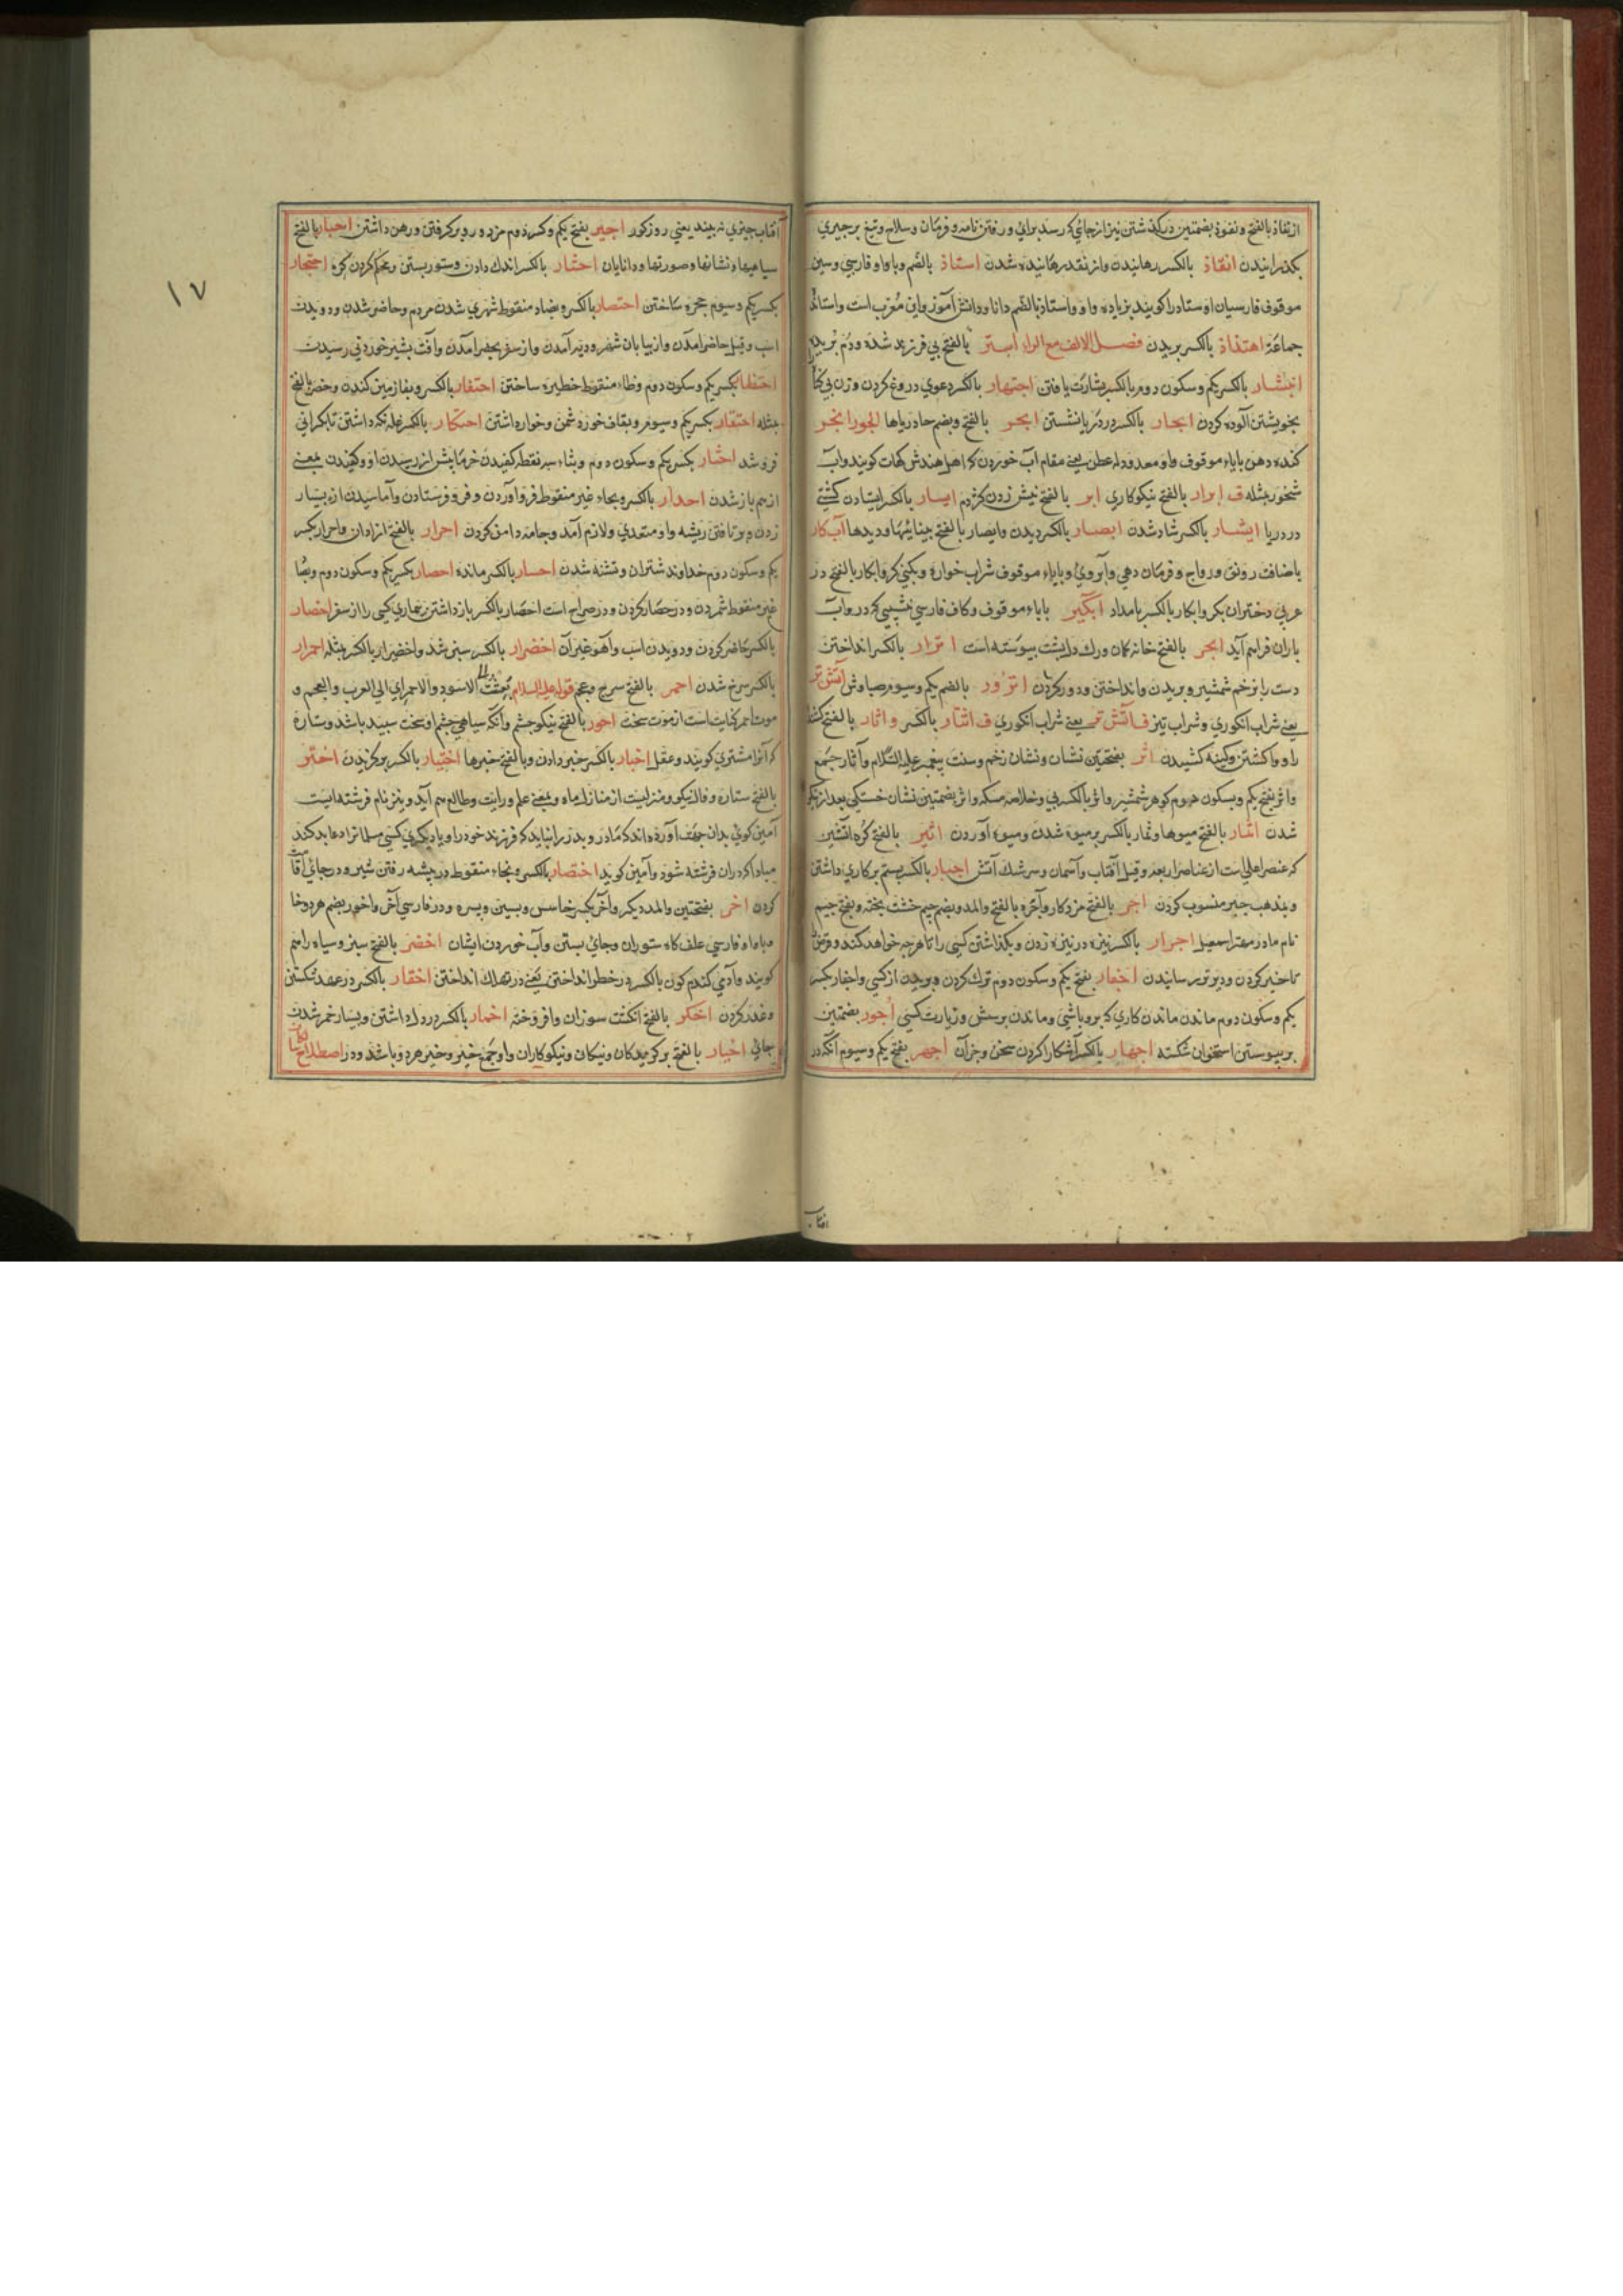 ازنفاذ بالفتح ونفوذ بضمتین درگذشتن تیر از جائی که رسد برائی و رفتن نامه و فرمان وسلام وتیغ بر چیزی
بگذرانیدن انقاذ بالکسر رهانیدن واز نقد رهانیده شدن استاذ بالضم وباواو فارسی وسین
موقوف فارسیان اوستاد را گویند بزیاده واو واستاد بالضم دانا ودانش آموز واین معرب است واستاذ
جماعة اهتذاذ بالکسر بریدن فصل الالف مع الراء ابتر بالفتح بی فرزند شده ودم بریده
ابتشار بالکسر یکم وسکون دوم بالکسر بشارت یافتن ابتهار بالکسر دعوی دروغ کردن وزن بی نکاح
بخویشتن آلوده کردن ابحار بالکسر در دریا نشستن ابحر بالفتح وبضم حا دریاها ابخر
کنده دهن بایاء موقوف واو معدوله عطن یعنی مقام آب خوردن که اهل هندش کهات گویند وآب
شخور مثله ف ابرار بالفتح نیکوکاری ابر بالفتح نیش زدن کژدم ابسار بالکسر ایستادن کشتی
در دریا ابشار بالکسر شاد شدن ابصار بالکسر دیدن وابصار بالفتح بینائیها ودیدها آب کار
باضافت رونق ورواج وفرمان دهی وآبروی وبایاء موقوف شراب خواره وبکنی کر وابکار بالفتح در
عربی دختران بکر وابکار بالکسر بامداد آبگیر بایاء موقوف وکاف فارسی نشیبی که در وآب
باران فراهم آید ابهر بالفتح خانه کمان ورک دل بپشت پیوسته است اترار بالکسر انداختن
دست را بزخم شمشیر وبریدن وانداختن ودور کردن اترور بالضم یکم وسیوم صباوش آتش تر
یعنی شراب انگوری وشراب تیز ف آتش تر یعنی شراب انگوری ف اثار بالکسر واثآر بالفتح کشنده
را واکشتن وکینه کشیدن اثر بفتحتین نشان ونشان زخم وسنت پیغمبر علیه السلام وآثار جمع
واثر بفتح یکم وبسکون دوم گوهر شمشیر واثر بالکسر پی وخلاصه مسکه واثر بضمتین نشان خستگی بعد از نیکو
شدن اثمار بالفتح میوها وثمار بالکسر بر میوه شدن ومیوه آوردن اثیر بالفتح کره آتشین
که عنصر اعلی است از عناصر اربعه وقیل آفتاب وآسمان وسرشک آتش اجبار بالکسر بستم بر کاری داشتن
وبمذهب جبر منسوب کردن اجر بالفتح مزد کار وآجره بالفتح والمد وبضم جیم خشت پخته وبفتح جیم
نام مادر مهتر اسمعیل اجرار بالکسر نیزه در نیزه زدن وبگذاشتن کسی را تا هرچه خواهد کند وقرض
تاخیر کردن ودیرتر رسانیدن اجفار بفتح یکم وسکون دوم ترک کردن وبریدن از کسی واجفار بکسر
یکم وسکون دوم ماندن ماندن کاری که برو باشی وماندن پرسش وزیارت کسی اجور بضمتین
بر پیوستن استخوان شکسته اجهار بالکسر آشکارا کردن سخن وجز آن اجهر بفتح یکم وسیوم آنکه در
افتاب
۱۷
آفتاب چیزی نه بیند یعنی روزکور اجیر بفتح یکم وکسر دوم مزدور دبر گرفتن ورهن داشتن احبار بالفتح
سیاهیها ونشانها وصورتها ودانایان احتار بالکسر اندک دادن وستور بستن ومحکم کردن گره احتجار
بکسر یکم وسیوم حجره ساختن احتضار بالکسر وبضاد منقوط شهری شدن مردم وحاضر شدن ودویدن
اسب وقیل حاضر آمدن واز بیابان شهر ودیه آمدن واز سفر بحضر آمدن وآفت بشیر خوردنی رسیدن
احتظار بکسر یکم وسکون دوم وظاء منقوط حظیره ساختن احتفار بالکسر وبفا زمین کندن وحفر بالفتح
مثله احتقار بکسر یکم وسیوم وبقاف خورد شمردن وخوار داشتن احتکار بالکسر غله نگه داشتن تا بگرانی
فروشد احثار بکسر یکم وسکون دوم وبثاء سه نقطه کفیدن خرما پیش از رسیدن او وکفیدن بمعنی
از هم باز شدن احدار بالکسر وبحاء غیر منقوط فرو آوردن وفرو فرستادن وآماسیدن از بسیار
زدن وبر تافتن ریشه واو متعدی ولازم آمد وجامه دامن کردن احرار بالفتح آزادان واحرار بکسر
یکم وسکون دوم خداوند شتران وتشنه شدن احسار بالکسر مانده احصار بکسر یکم وسکون دوم وبصاد
غیر منقوط شمردن ودر حصار کردن ودر صراح است احصار بالکسر باز داشتن بیماری کسی را از سفر احضار
بالکسر حاضر کردن ودویدن اسب وآهو وغیر آن اخضرار بالکسر سبز شد واخضیرار بالکسر مثله احمرار
بالکسر سرخ شدن احمر بالفتح سرخ وعجم قوله علیه السلام بعثت الی الاسود والاحمر ای الی العرب والعجم و
موت احمر کنایت است از موت سخت احور بالفتح نیکو چشم وآنکه سیاهی چشم او سخت سپید باشد وستاره
که آنرا مشتری گویند وعقل اخبار بالکسر خبر دادن وبالفتح خبرها اختیار بالکسر برگزیدن اختر
بالفتح ستاره وفال نیکو ومنزلیست از منازل ماه وبمعنی علم ورایت وطالع هم آید ونیز نام فرشته ایست
آمین گوی بدان جهت آورده اند که مادر وپدر را نباید که فرزند خود را ویا دیگری کسی مسلمان را دعا بد کند
مبادا که در آن فرشته شود وآمین گوید اختصار بالکسر وبخاء منقوط در بیشه رفتن شیر ودر جائی اقامت
کردن اخر بفتحتین والمد دیگر وآخر بکسر خا سپس وبسین وپسره ودر فارسی آخر وآخور بضم هر دو خا
وباواو فارسی علف گاه ستوران وجائی بستن وآب خوردن ایشان اخضر بالفتح سبز وسیاه را هم
گویند وآدمی گندم گون بالکسر در خطر انداختن یعنی در تهلک انداختن اخفار بالکسر در عهد شکستن
وغدر کردن اخگر بالفتح انگشت سوزان وافروخته اخمار بالکسر در دل داشتن وبسیار خمر شدن
جائی اخیار بالفتح برگزیدگان ونیکان ونیکوکاران واو جمع خیر وخیر هر دو باشد ودر اصطلاح